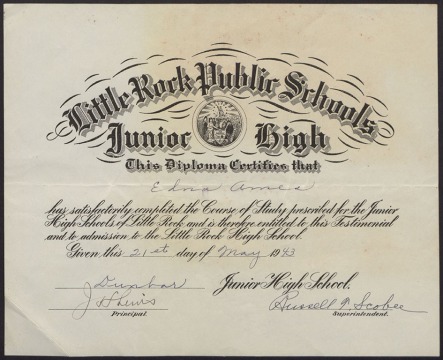 Little Rock Public Schools
Junior High
This Diploma Certifies that
Edna Ames
has satisfactorily completed the Course of Study prescribed for the Junior
High Schools of Little Rock and is therefore entitled to this Testimonial
and to admission to the Little Rock High School.
Given this 21st day of May 1943
Dunbar Junior High School.
J H Lewis Russell T. Scobee
Principal. Superintendent.